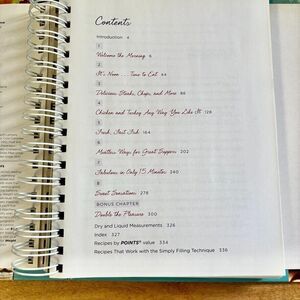 Contents
Introduction 4
1
Welcome the Morning 6
2
It's Noon . . . Time to Eat 44
3
Delicious Steaks, Chops, and More 86
4
Chicken and Turkey Any Way You Like It 126
5
Fresh, Fast Fish 164
6
Meatless Ways for Great Suppers 202
7
Fabulous in Only 15 Minutes 240
8
Sweet Sensations 276
BONUS CHAPTER
Double the Pleasure 300
Dry and Liquid Measurements 326
Index 327
Recipes by POINTS® value 334
Recipes That Work with the Simply Filling Technique 336